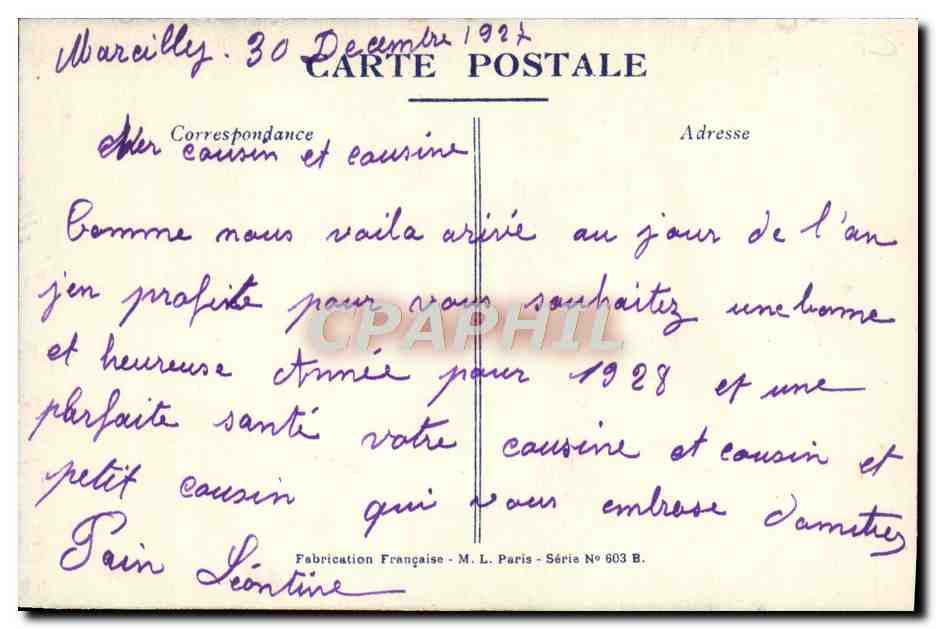 Marcilly. 30 Decembre 1927
CARTE POSTALE
Correspondance
Adresse
cher cousin et cousine
Comme nous voila arivé au jour de l'an
j'en profite pour vous souhaitez une bonne
et heureuse Année pour 1928 et une
parfaite santé votre cousine et cousin et
petit cousin qui vous embrase d'amitiez
Pain Léontine
CPAPHIL
Fabrication Française - M. L. Paris - Série No 603 B.